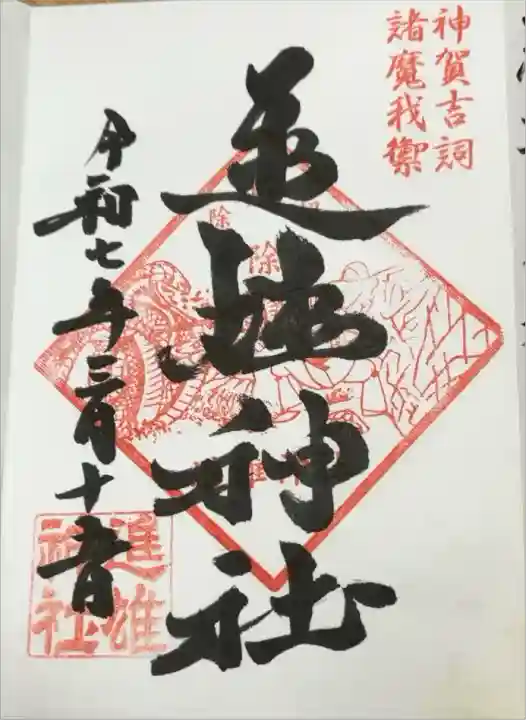 神賀吉詞
諸魔我禦
進雄神社
令和七年三月十五日
除
除
進雄
神社